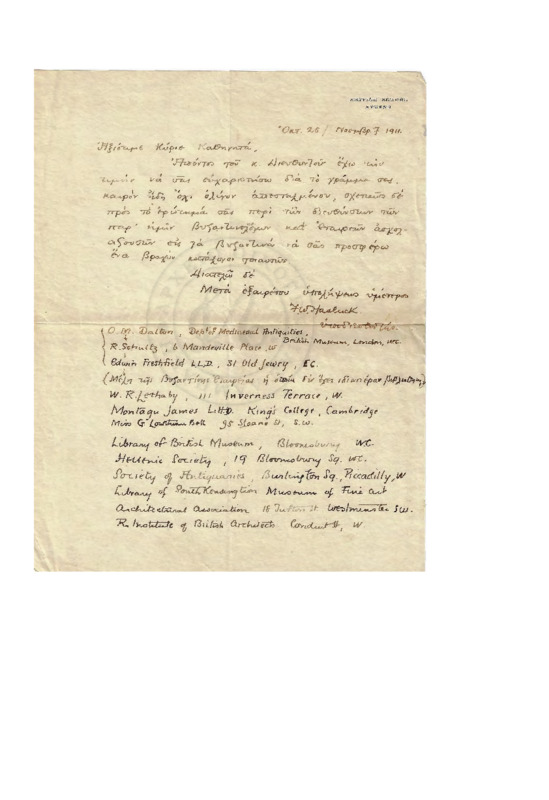 Ὀκτ. 25 / Νοεμβρ 7 1911.
Ἀξιότιμε Κύριε Καθηγητά,
Ἀπόντος τοῦ κ Διευθυντοῦ ἔχω τὴν
τιμὴν νὰ σᾶς εὐχαριστήσω διὰ τὸ γράμμα σας.
καιρὸν ἤδη ὄχι ὀλίγον ἀπεσταλμένον, σχετικῶς δὲ
πρὸς τὸ ἐρώτημά σας περὶ τῶν διευθύνσεων τῶν
παρ' ἡμῖν Βυζαντινολόγων καὶ Ἑταιρειῶν ἀσχολ-
αζουσῶν εἰς τὰ Βυζαντινὰ νὰ σᾶς προσφέρω
ἕνα βραχὺν κατάλογον τοιαυτῶν
Διατελῶ δὲ
Μετὰ ἐξαιρέτου ὑπολήψεως ὑμέτερος
F.W. Hasluck.
ὑποδιευθυντής.
O. M. Dalton, Dept of Mediaeval Antiquities,
British Museum, London, WC.
R. Schultz, 6 Mandeville Place, W
Edwin Freshfield LL.D., 31 Old Jewry, EC.
(Μέλη τῆς Βυζαντίνης Ἑταιρείας ἡ ὁποία δὲν ἔχει ἰδιαιτέραν
W. R. Lethaby, 111 Inverness Terrace, W.
Montagu James Litt.D. King's College, Cambridge
Miss G Lowthian Bell 95 Sloane St, S.W.
Library of British Museum, Bloomsbury WC.
Hellenic Society, 19 Bloomsbury Sq. WC.
Society of Antiquaries, Burlington Sq, Piccadilly, W
Library of South Kensington Museum of Fine Art
Architectural Association 18 Tufton St Westminster S.W.
R. Institute of British Architects Conduit St, W